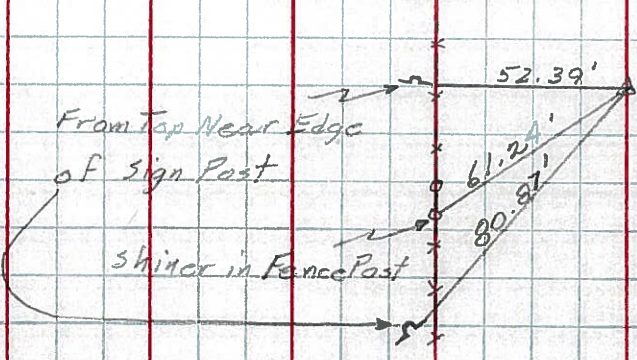 52.39'
From Top Near Edge
of Sign Post
61.24'
80.87'
Shiner in Fence Post